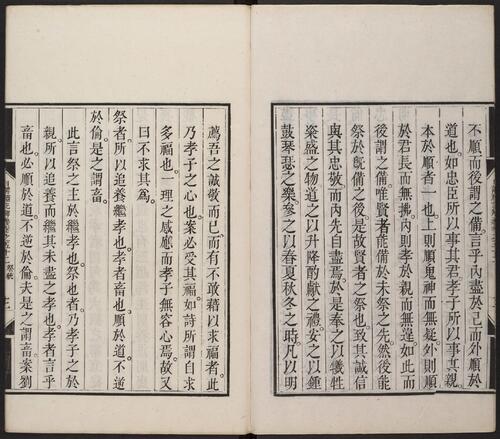 不順而後謂之備言乎內盡於己而外順於
道也如忠臣所以事其君孝子所以事其親
本於順者一也上則順鬼神而無疑外則順
於君長而無拂內則孝於親而無違如此而
後謂之備唯賢者能備於未祭之先然後能
祭於既備之後是故賢者之祭也致其誠信
與其忠敬而內先自盡焉於是奉之以犧牲
粢盛之物道之以升降酌獻之禮安之以鍾
鼓琴瑟之樂參之以春夏秋冬之時凡以明
薦吾之誠敬而已而有不敢藉以求福者此
乃孝子之心也案必受其福如詩所謂自求
多福也一理之感應而孝子無容心焉故又
曰不求其爲
祭者所以追養繼孝也孝者畜也順於道不逆
於倫是之謂畜
此言祭之主於繼孝也祭也者乃孝子之於
親所以追養而繼其未盡之孝也孝者言乎
畜也必順於道不逆於倫夫是之謂畜案劉